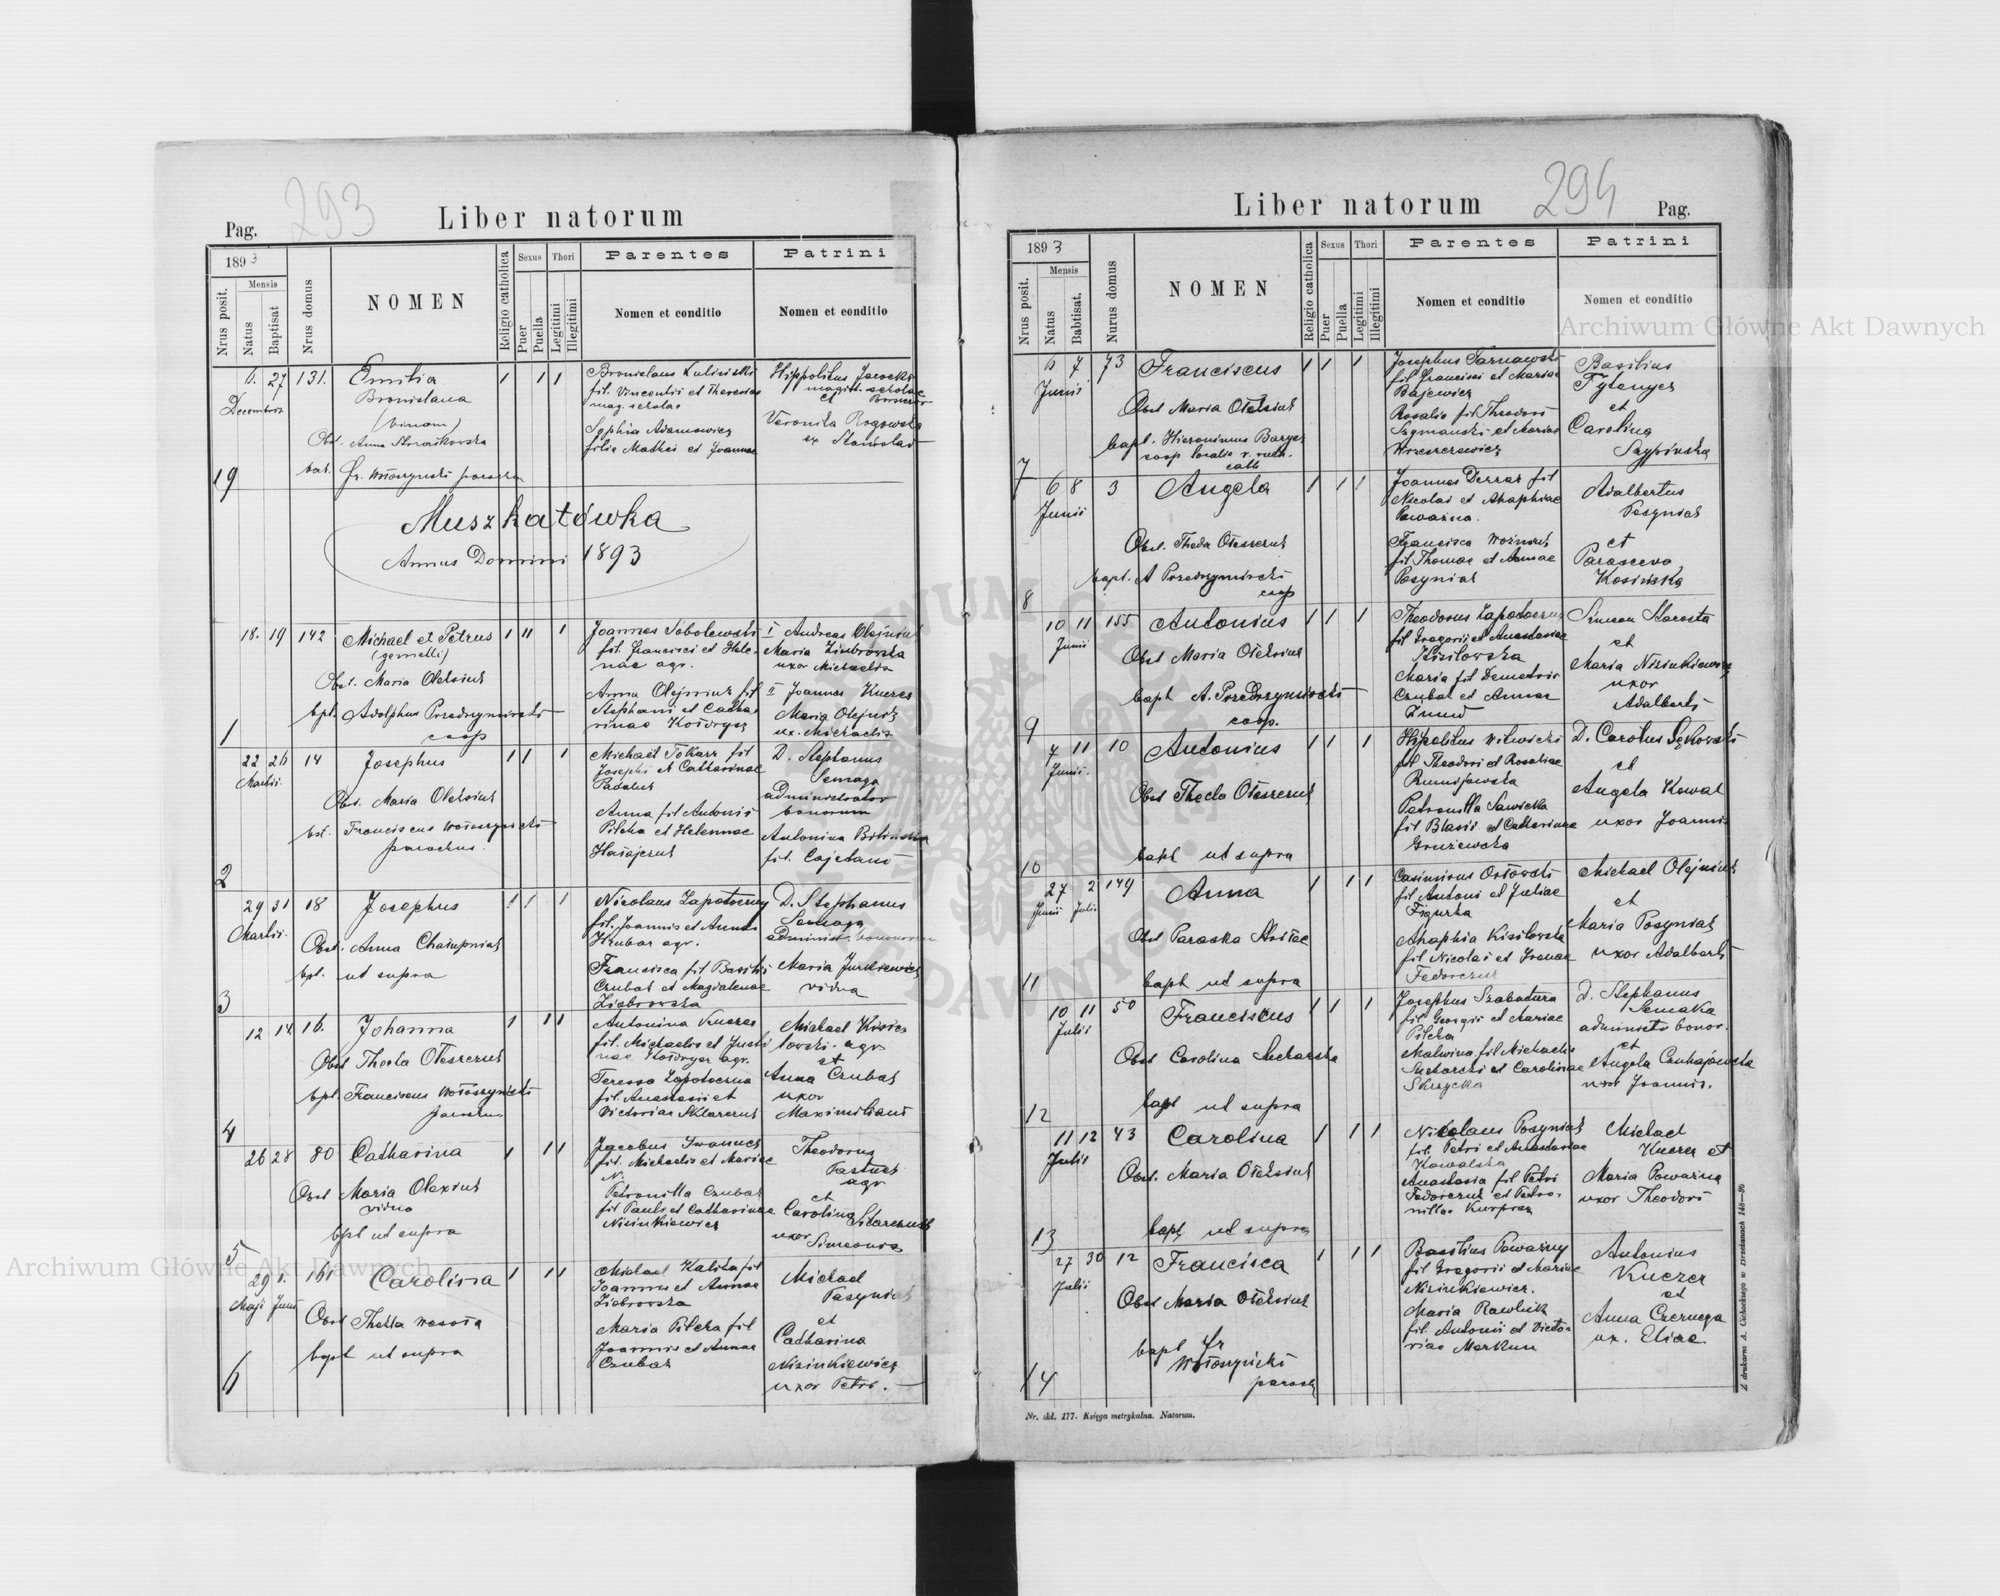 293
Pag.
Liber natorum
1893
Nrus posit.
Mensis
Natus
Baptisat
Nrus domus
NOMEN
Religio catholica
Sexus
Puer
Puella
Thori
Legitimi
Illegitimi
Parentes
Nomen et conditio
Patrini
Nomen et conditio
6. 27 131. Emilia
Decembris Bronislana
(binam)
Obst. Anna
bat. Fr. parocha
19
Bronislaus
fil. Vincentii et Theresiae
mag. scholae
Sophia Adamowicz
filia Mathei et Joannae
Hippolitus
magist. scholae
et
Veronika
ux Stanislai
Muszkatówka
Annus Domini 1893
18. 19 142 Michael et Petrus
(gemelli)
Obst. Maria Oleksiuk
bpt. Adolphus Przedrzymirski
coop
1
Joannes Sobolewski
fil. Francisci et Hele-
nae agr.
Anna Olejniuk fil
Stephani et Catha
rinae
I Andreas Olejniuk
Maria Ziobrowska
uxor Michaelis
II Joannes Kucres
Maria Olejnik
ux. Michaelis
22 26 14 Josephus
Martii
Obst. Maria Oleksiuk
bpt. Franciscus
parochus.
2
Michael Tokarz fil
Josephi et Catharinae
Anna fil Antonii
Pilcha et Helennae
D. Stephanus
Semaga
administrator
bonorum
Antonina Bilinska
fil. Cajetani
29 31 18 Josephus
Martii.
Obst. Anna
bpt. ut supra
3
Nicolaus Lapotoczny
fil. Joannis et Anna
Hrubar agr.
Francisca fil Basilii
Czubat et Magdalenae
Ziobrowska
D. Stephanus
Semaga
administ. bonorum
Maria Jurkiewicz
vidua
12 14 16. Johanna
Obst Thecla Oleszczuk
bpt. Franciscus
parochus
4
Antonius Kucres
fil. Michaelis et Justi
nae agr.
Teressa Lapotoczna
fil. Anastasii et
Victoriae
Michael Kisie
lowski. agr
et
Anna Czubat
uxor
Maximiliani
26 28 80 Catharina
Obst Maria Olexiuk
vidua
bpt ut supra
5
Jacobus Iwanuch
fil. Michaelis et Mariae
N.
Petronilla Czubat
fil Pauli et Catharinae
Nisinkiewicz
Theodorus
agr
et
Carolina
uxor
Simeonis
29 1. 161 Carolina
Maji Junii
Obst Thekla
bapt ut supra
6
Michael Kalita fil
Joannis et Annae
Ziobrowska
Maria Pilcha fil
Joannis et Annae
Czubat
Michael
Pasyniak
et
Catharina
Nisinkiewicz
uxor Petri.
Liber natorum
294
Pag.
1893
Nrus posit.
Mensis
Natus
Babtisat.
Nurus domus
NOMEN
Religio catholica
Sexus
Puer
Puella
Thori
Legitimi
Illegitimi
Parentes
Nomen et conditio
Patrini
Nomen et conditio
6 7 73 Franciscus
Junii
Obst Maria Oleksiuk
bapt. Hieronimus Barycz
coop localis r. ruth.
cath
7
Josephus Tarnawski
fil Francisci et Mariae
Bajewicz
Rosalia fil Theodori
Szymanski et Mariae
Basilius
et
Carolina
6 8 3 Angela
Junii
Obst. Thecla Oleszczuk
bapt. A Przedrzymirski
coop
8
Joannes Derrar fil
Nicolai et Ahaphiae
Poważna.
Francisca Woźniuk
fil Thomae et Annae
Posyniak
Adalbertus
Posyniak
et
Parasceva
Kosińska
10 11 155 Antonius
Junii
Obst Maria Oleksiuk
bapt A. Przedrzymirski
coop.
9
Theodorus Lapotoczny
fil Gregorii et Anastasiae
Kisilowska
Maria fil Demetrii
Czubat et Annae
Simeon Starosta
et
Maria Nisinkiewicz
uxor
Adalberti
7 11 10 Antonius
Junii.
Obst Thecla Oleszczuk
bapt ut supra
10
Hipolitus Witwicki
fil Theodori et Rosaliae
Petronilla Sawicka
fil Blasii et Catharinae
D. Carolus
et
Angela Kowal
uxor Joannis
27 2 149 Anna
Junii Julii
Obst Paraska
bapt ut supra
11
Casimirus Orlowski
fil Antoni et Juliae
Figurka
Ahaphia Kisilowska
fil Nicolai et Irenae
Fedorczuk
Michael Olejniuk
et
Maria Posyniak
uxor Adalberti
10 11 50 Franciscus
Julii
Obst Carolina Sucharska
bapt ut supra
12
Josephus Szabatura
fil Georgii et Mariae
Pilcha
Malwina fil Michaelis
Sucharski et Carolinae
Skrzycka
D. Stephanus
Semaka
administr bonor.
et
Angela
uxor Joannis.
11 12 43 Carolina
Julii
Obst. Maria Oleksiuk
bapt. ut supra
13
Nicolaus Posyniak
fil. Petri et Anastasiae
Kowalska
Anastasia fil Petri
Fedorczuk et Petro-
nillae
Michael
Kucrez et
Maria Poważna
uxor Theodori
27 30 12 Francisca
Julii
Obst Maria Oleksiuk
bapt Fr
paroch
14
Basilius Poważny
fil Gregorii et Mariae
Nisinkiewicz.
Maria Pawluk
fil. Antonii et Victo-
riae Markun
Antonius
Kuczer
et
Anna Czernega
ux. Eliae
Nr. skł. 177. Księga metrykalna. Natorum.
Z drukarni A. Cichockiego w Brzeżanach 148—90
Archiwum Główne Akt Dawnych
Archiwum Główne Akt Dawnych